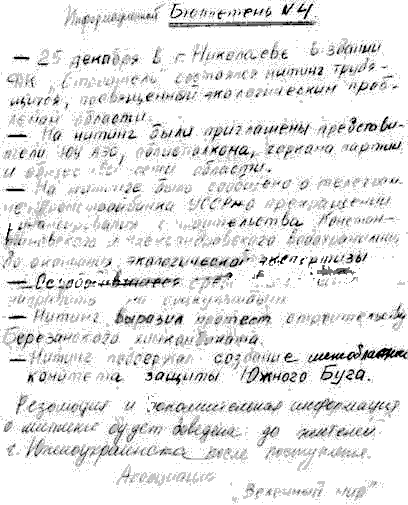 Информационный Бюллетень № 4
— 25 декабря в г. Николаеве в здании
ДК "Строитель" состоялся митинг трудя-
щихся, посвященный экологическим проб-
лемам области.
— На митинг были приглашены представи-
тели ЮУ АЭС, облисполкома, горкома партии
и области.
— На митинге было сообщено о
УССР о прекращении
финансирования строительства Констан-
тиновского и Александровского водохранилищ
до окончания экологической экспертизы
—
— Митинг выразил протест строительству
Березанского химкомбината.
— Митинг поддержал создание
комитета защиты Южного Буга.
Резолюция и дополнительная информация
о митинге будет доведена до жителей
г. Южноукраинска после поступления.
Ассоциация
"Зеленый мир"